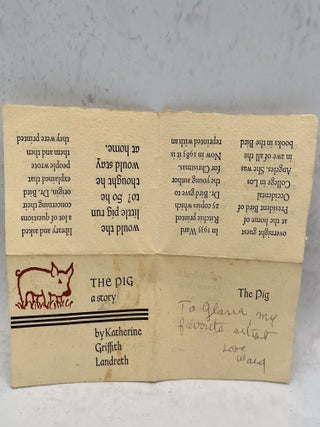 THE PIG
a story
by Katherine
Griffith
Landreth
The Pig
To Gloria my
favorite artist
Love
Ward
overnight guest
at the home of
President of Bird
Occidental
College in Los
Angeles. She was
in awe of all the
books in the Bird
In 1935 Ward
Ritchie printed
25 copies which
Dr. Bird gave to
the young author
for Christmas.
Now in 1983 it is
reprinted with an
would the
little pig run
to? So he
thought he
would stay
at home.
library and asked
a lot of questions
concerning their
origin. Dr. Bird
explained that
people wrote
them and then
they were printed